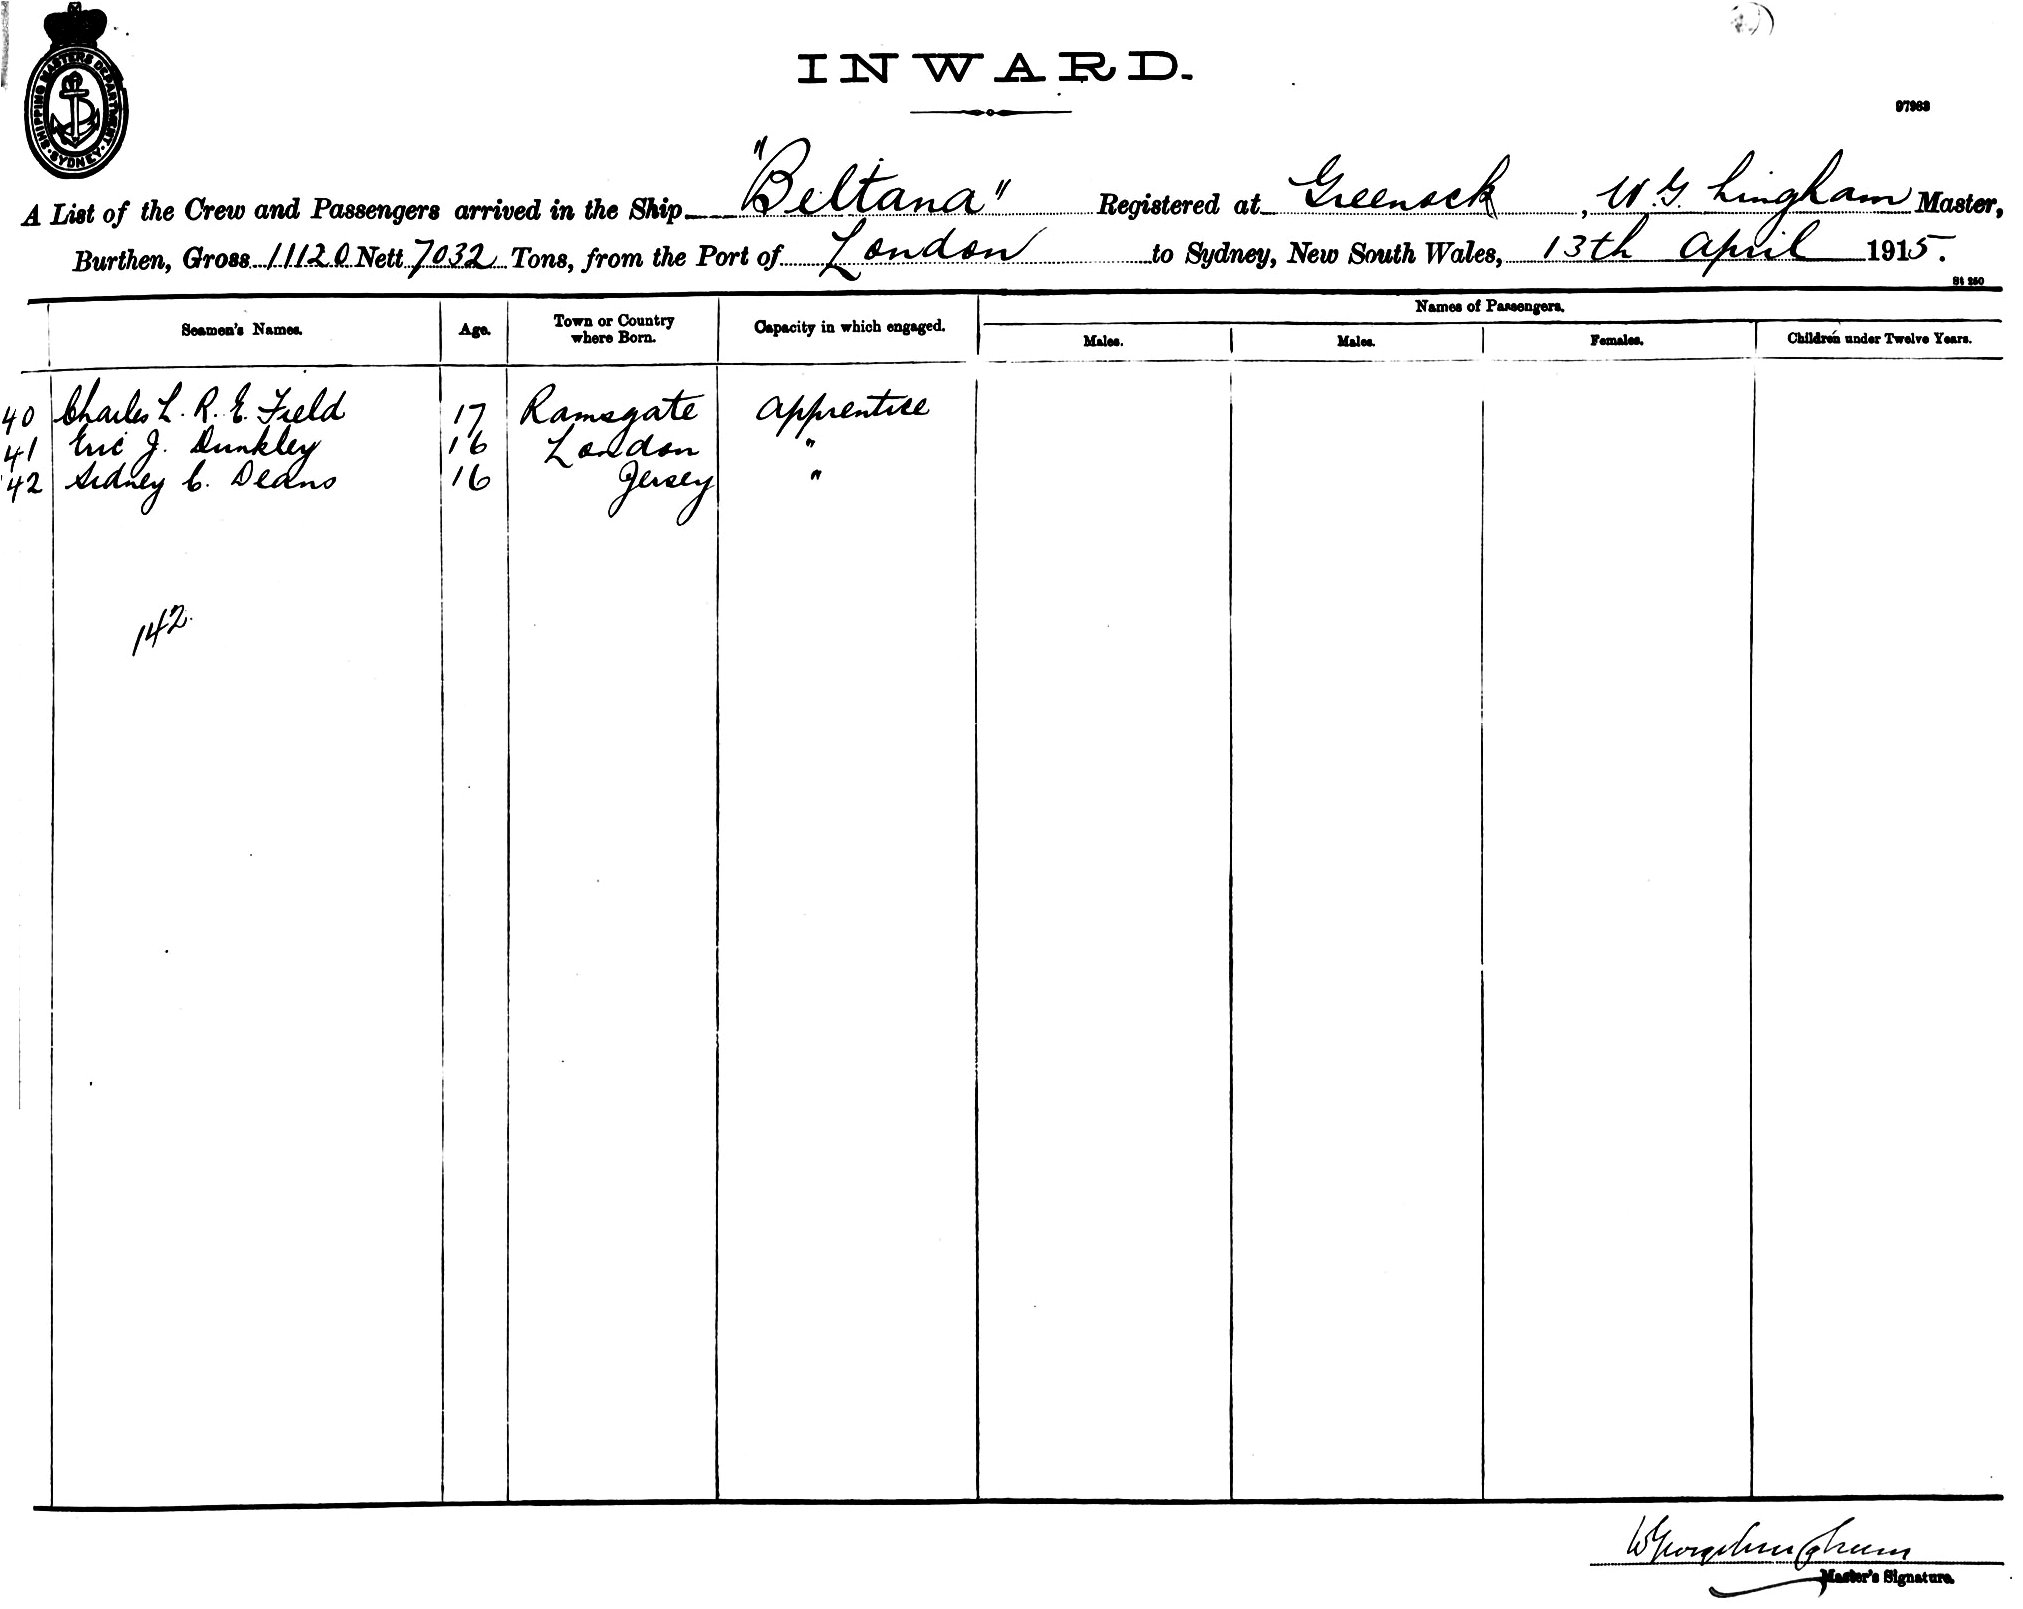 SHIPPING MASTERS DEPARTMENT · SYDNEY ·
INWARD.
97963
A List of the Crew and Passengers arrived in the Ship "Beltana" Registered at Greenock, W. G. Lingham Master,
Burthen, Gross 11120 Nett 7032 Tons, from the Port of London to Sydney, New South Wales, 13th April 1915.
St 250
Names of Passengers.
Seamen's Names. Age. Town or Country where Born. Capacity in which engaged. Males. Males. Females. Children under Twelve Years.
40 Charles L. R. E. Field 17 Ramsgate Apprentice
41 Eric J. Dunkley 16 London "
42 Sidney C. Deans 16 Jersey "
142.
Master's Signature.